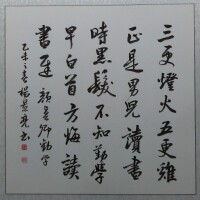 三更燈火五更雞
正是男兒讀書
時黑髮不知勤學
早白首方悔讀
書遲 顏真卿勤學
乙未之春 楊